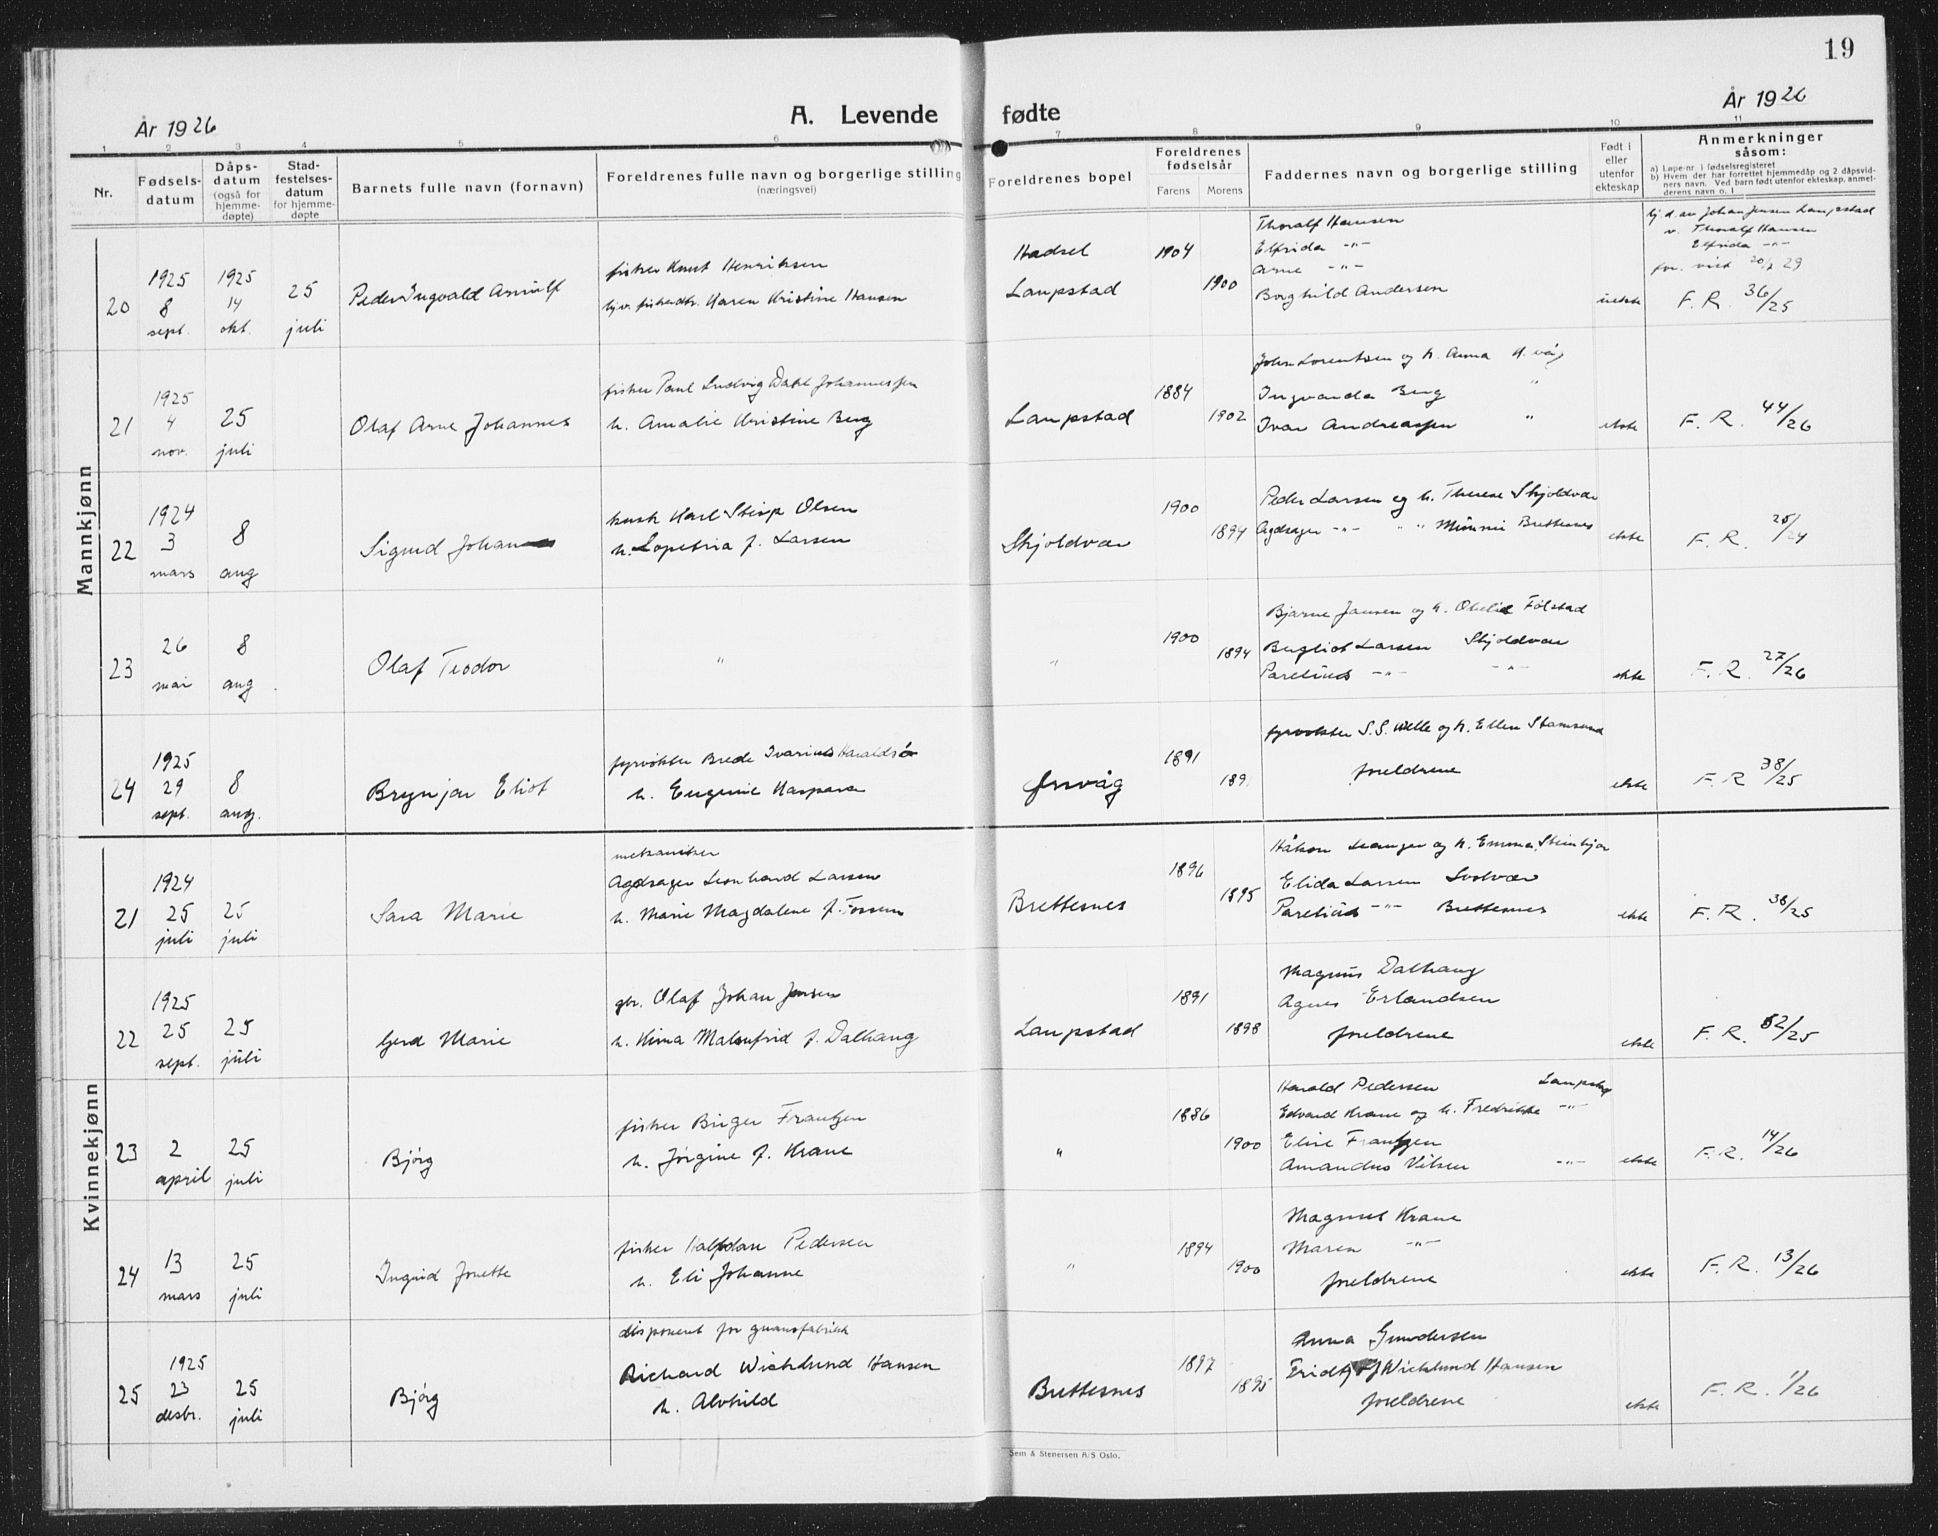 19
År 1926
A. Levende fødte
År 1926
1 2 3 4 5 6 7 8 9 10 11
Nr.
Fødsels-
datum
Dåps-
datum
(også for
hjemme-
døpte)
Stad-
festelses-
datum
for hjemme-
døpte
Barnets fulle navn (fornavn)
Foreldrenes fulle navn og borgerlige stilling
(næringsvei)
Foreldrenes bopel
Foreldrenes
fødselsår
Farens Morens
Faddernes navn og borgerlige stilling
Født i
eller
utenfor
ekteskap
Anmerkninger
såsom:
a) Løpe-nr. i fødselsregisteret
b) Hvem der har forrettet hjemmedåp og 2 dåpsvid-
ners navn. Ved barn født utenfor ekteskap, anmet-
derens navn o. l
Mannkjønn
20
1925
8
sept.
1925
14
okt.
25
juli
Peder Ingvald Arnulf
fisker Knut Henriksen
Karen Kristine Hansen
Hadsel
Laupstad
1904
1900
Thoralf Hansen
Elfrida -"-
Arne -"-
Borghild Andersen
uekte
hj. d. av Johan Jensen Laupstad
v. Thoralf Hansen
Elfrida -"-
F. R. 36/25
21
1925
4
nov.
25
juli
Olaf Arne Johannes
fisker Paul Ludvig Dahl Johannessen
h. Amalie Kristine Berg
Laupstad
1884
1902
John Lorentsen og h. Anna
Ingvarda Berg "
Ivar Andreassen "
ekte
F. R. 44/26
22
1924
3
mars
8
aug
Sigurd Johan
Karl Olsen
h. Lopetria f. Larsen
Skjoldvær
1900
1894
Peder Larsen og h. Therese Skjoldvær
Agdrager -"- " " Brettesnes
ekte
F. R. 25/24
23
26
mai
8
aug
Olaf Teodor
"
"
1900
1894
Bjarne Jansen og h. Følstad
Bergliot Larsen Skjoldvær
Parelius -"- -"-
ekte
F. R. 27/26
24
1925
29
sept.
8
aug.
Brynjar Eliot
fyrvokter Brede Ivarius
h. Eugenie
Ørsvåg
1891
189
fyrvokter S. S. Welle og h. Ellen Stamsund
foreldrene
ekte
F. R 38/25
Kvinnekjønn
21
1924
25
juli
25
juli
Sara Marie
mekaniker
Agdrager Leonhard Larsen
h. Marie Magdalene f. Fossum
Brettesnes
1896
1895
Håkon Leanger og h. Emma,
Elida Larsen Svolvær
Parelius -"- Brettesnes
ekte
F. R. 38/25
22
1925
25
sept.
25
juli
Gerd Marie
gbr. Olaf Johan Jensen
h. Malenfrid f. Dalhaug
Laupstad
1891
1898
Magnus Dalhaug
Agnes Erlandsen
foreldrene
ekte
F. R. 52/25
23
2
april
25
juli
Bjørg
fisker Birger Frantzen
h. Jørgine f. Krane
"
1886
1900
Harald Pedersen Laupstad
Edvard Krane og h. Fredrikke -"-
Elise Frantzen
Amandus Vilsen -"-
ekte
F. R. 14/26
24
13
mars
25
juli
Ingrid Jonette
fisker Halfdan Pedersen
h. Eli Johanne
"
1894
1900
Magnus Krane
Maren -"-
foreldrene
ekte
F. R. 13/26
25
1925
23
desbr.
25
juli
Bjørg
disponent for guanofabrikk
Richard Wicklund Hansen
h. Alvhild
Brettesnes
1897
1895
Anna Gundersen
Fridtjof Wicklund Hansen
foreldrene
ekte
F. R. 1/26
Sem & Stenersen A/S Oslo.